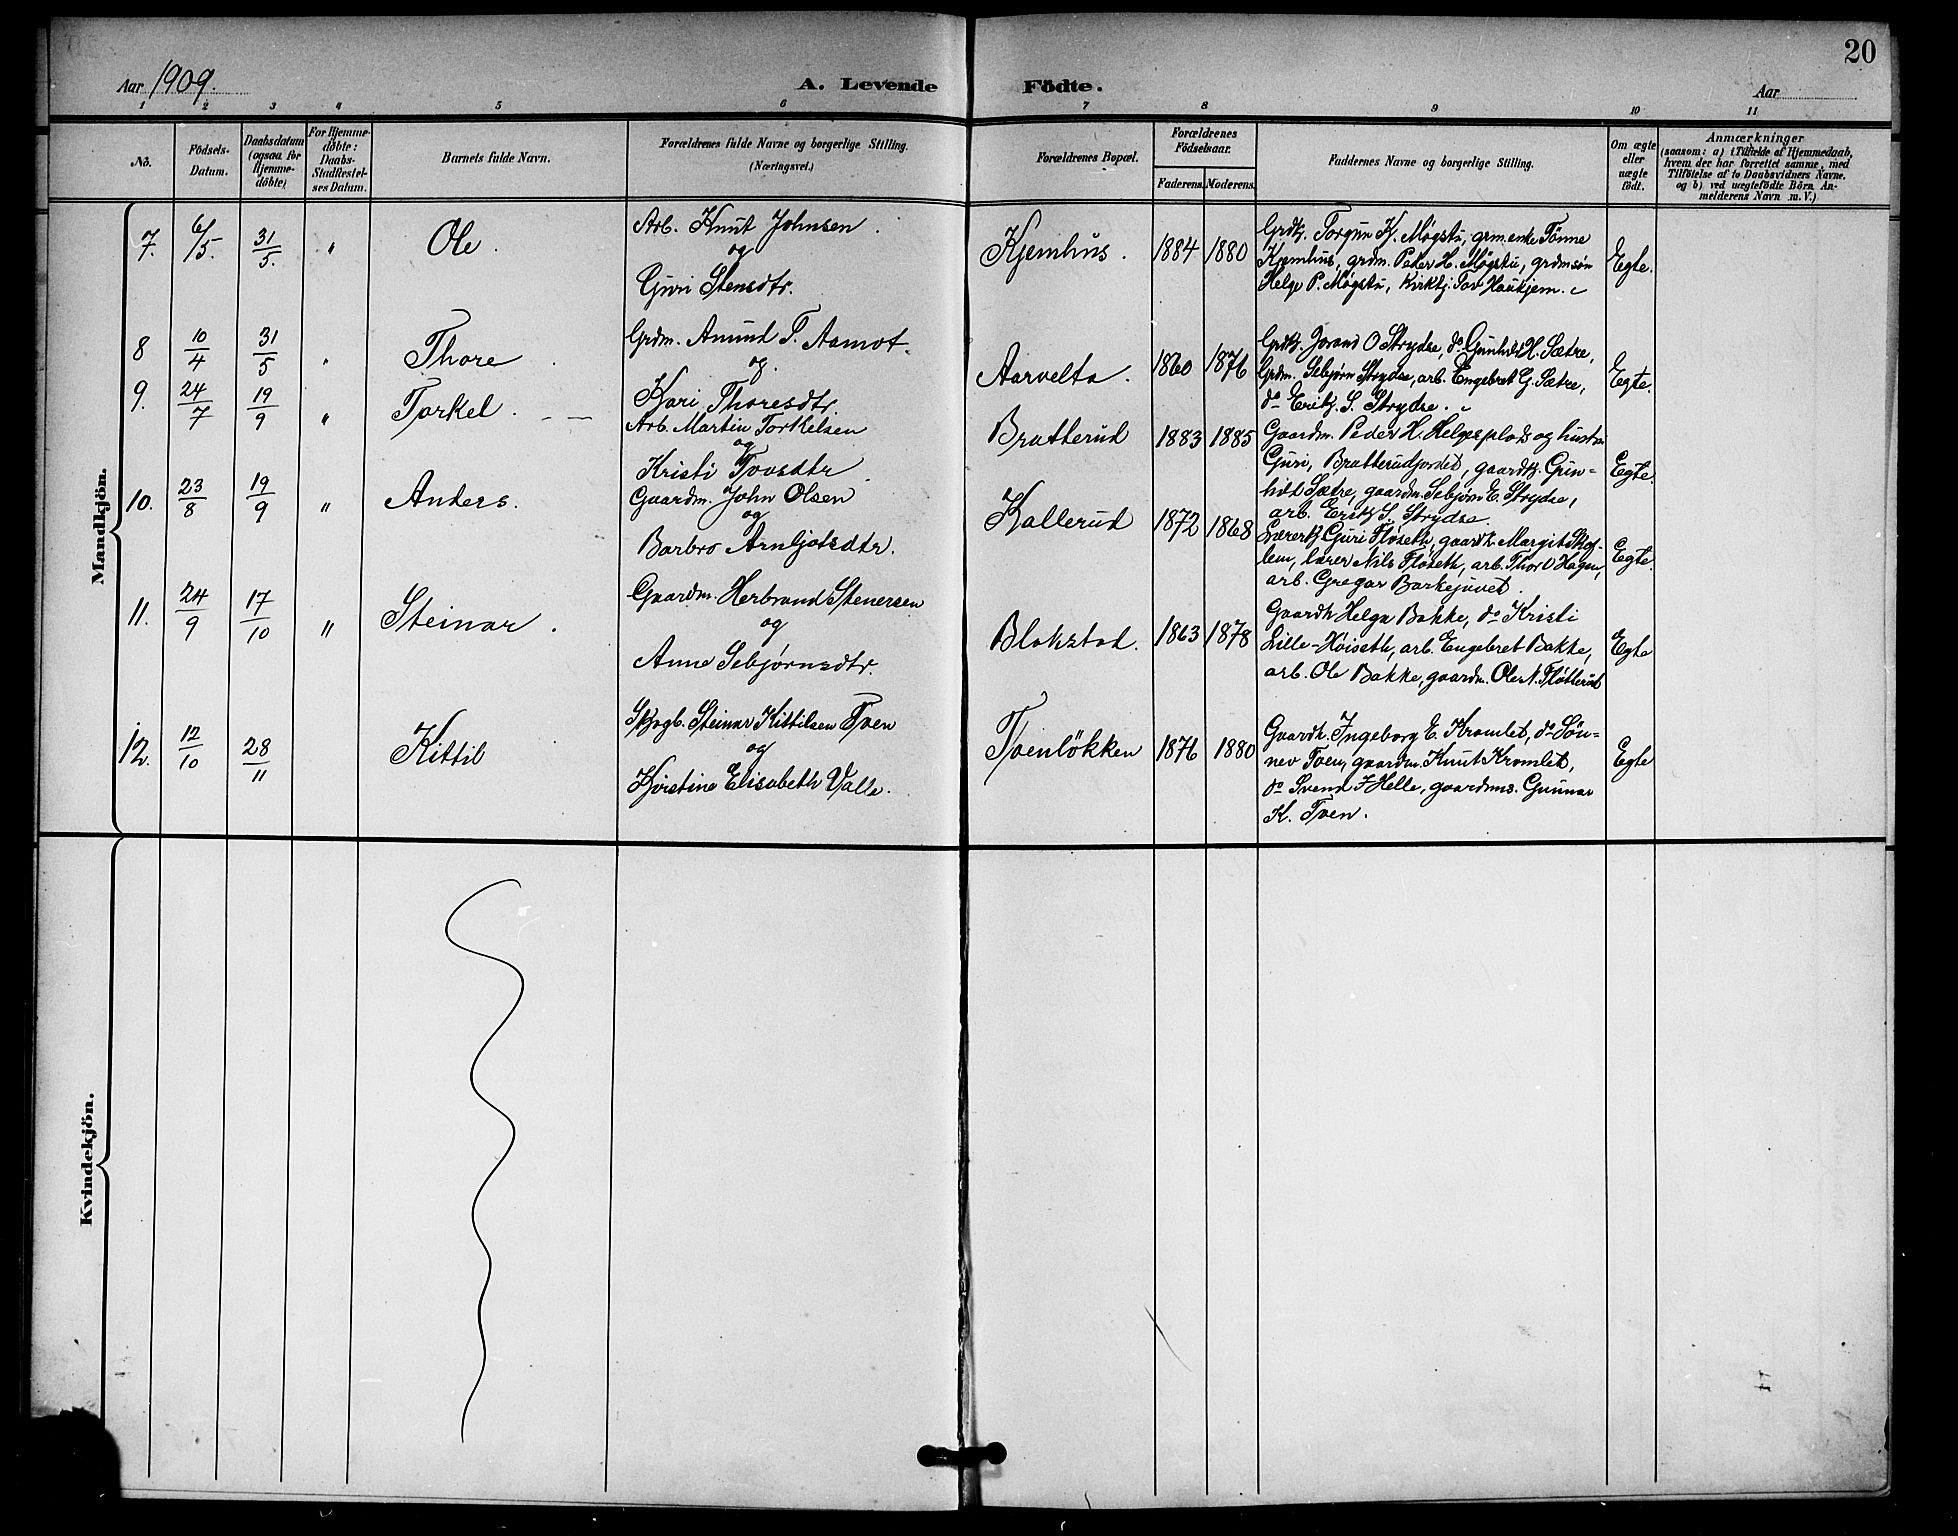 20
Aar 1909.
A. Levende Födte.
Aar
1 2 3 4 5 6 7 8 9 10 11
No.
Födsels-
Datum.
Daabsdatum
(ogsaa for
Hjemme-
döbte)
For Hjemme-
døbte:
Daabs-
Stadfestel-
ses Datum.
Barnets fulde Navn.
Forældrenes fulde Navne og borgerlige Stilling.
(Næringsvei.)
Forældrenes Bopæl.
Forældrenes
Födselsaar.
Faderens. Moderens.
Faddernes Navne og borgerlige Stilling.
Om ægte
eller
uægte
födt.
Anmærkninger
(saasom: a) i Tilfælde af Hjemmedaab,
hvem der har forrettet samme, med
Tilföielse af to Daabsvidners Navne.
og b) ved uægtefödte Börn An-
melderens Navn m. V.)
Mandkjön.
7. 6/5. 31/5. " Ole.
Arb. Knut Johnsen
og
Guri Stensdtr.
Kjemhus. 1884 1880
Grdk. Torgun K. Møgstu, grm.enke Tønne
Kjemhus, grdm. Peder H. Møgstu, grdmsøn
Helge P. Møgstu, Kirktj. Tov Haukjem.
Egte.
8 10/4 31/5 " Thore
Grdm. Amund T. Aamot.
og
Kari Thoresdtr.
Aarvelta. 1860 1876
Grdk. Jorand O Strydse, do Gunhild H. Sætre,
Grdm. Sebjørn Strydse, arb. Engebret G. Sætre,
do Erik S. Strydse.
Egte.
9. 24/7 19/9 " Torkel.
Arb. Martin Torkelsen
og
Kristi Tovsdtr
Bratterud 1883 1885
Gaardm. Peder H. Helgesplads og hustru
Guri, Bratterudjordet, gaardk. Gun-
hild Sætre, gaardm. Sebjørn E. Strydse,
arb. Erik S. Strydse.
Egte.
10. 23/8 19/9 " Anders.
Gaardm. John Olsen
og
Barbro Arnljotsdtr.
Kallerud 1872 1868
Lærerk. Guri Fløseth, gaardk. Margit Skot-
lem, lærer Nils Fløseth, arb. Thor O Hagen,
arb. Gregar Barkejuvet.
Egte.
11. 24/9 17/10 " Steinar.
Gaardm. Herbrand Stenersen
og
Anne Sebjørnsdtr.
Blakstad. 1863 1878
Gaardk Helga Bakke, do Kristi
Lille-Høiseth, arb. Engebret Bakke,
arb. Ole Bakke, gaardm. Ole N. Fløtterud
Egte
12. 12/10 28/11 Kittil
Skogb. Steinar Kittilsen Tven
og
Kjirstine Elisabeth Valle.
Tvenlökken 1876 1880
Gaardk. Ingeborg E. Kromlet, do Søn-
nev Tven, gaardm. Knut Kromlet,
do Svend J Helle, gaardms. Gunnar
K. Tven.
Egte
Kvindekjön.